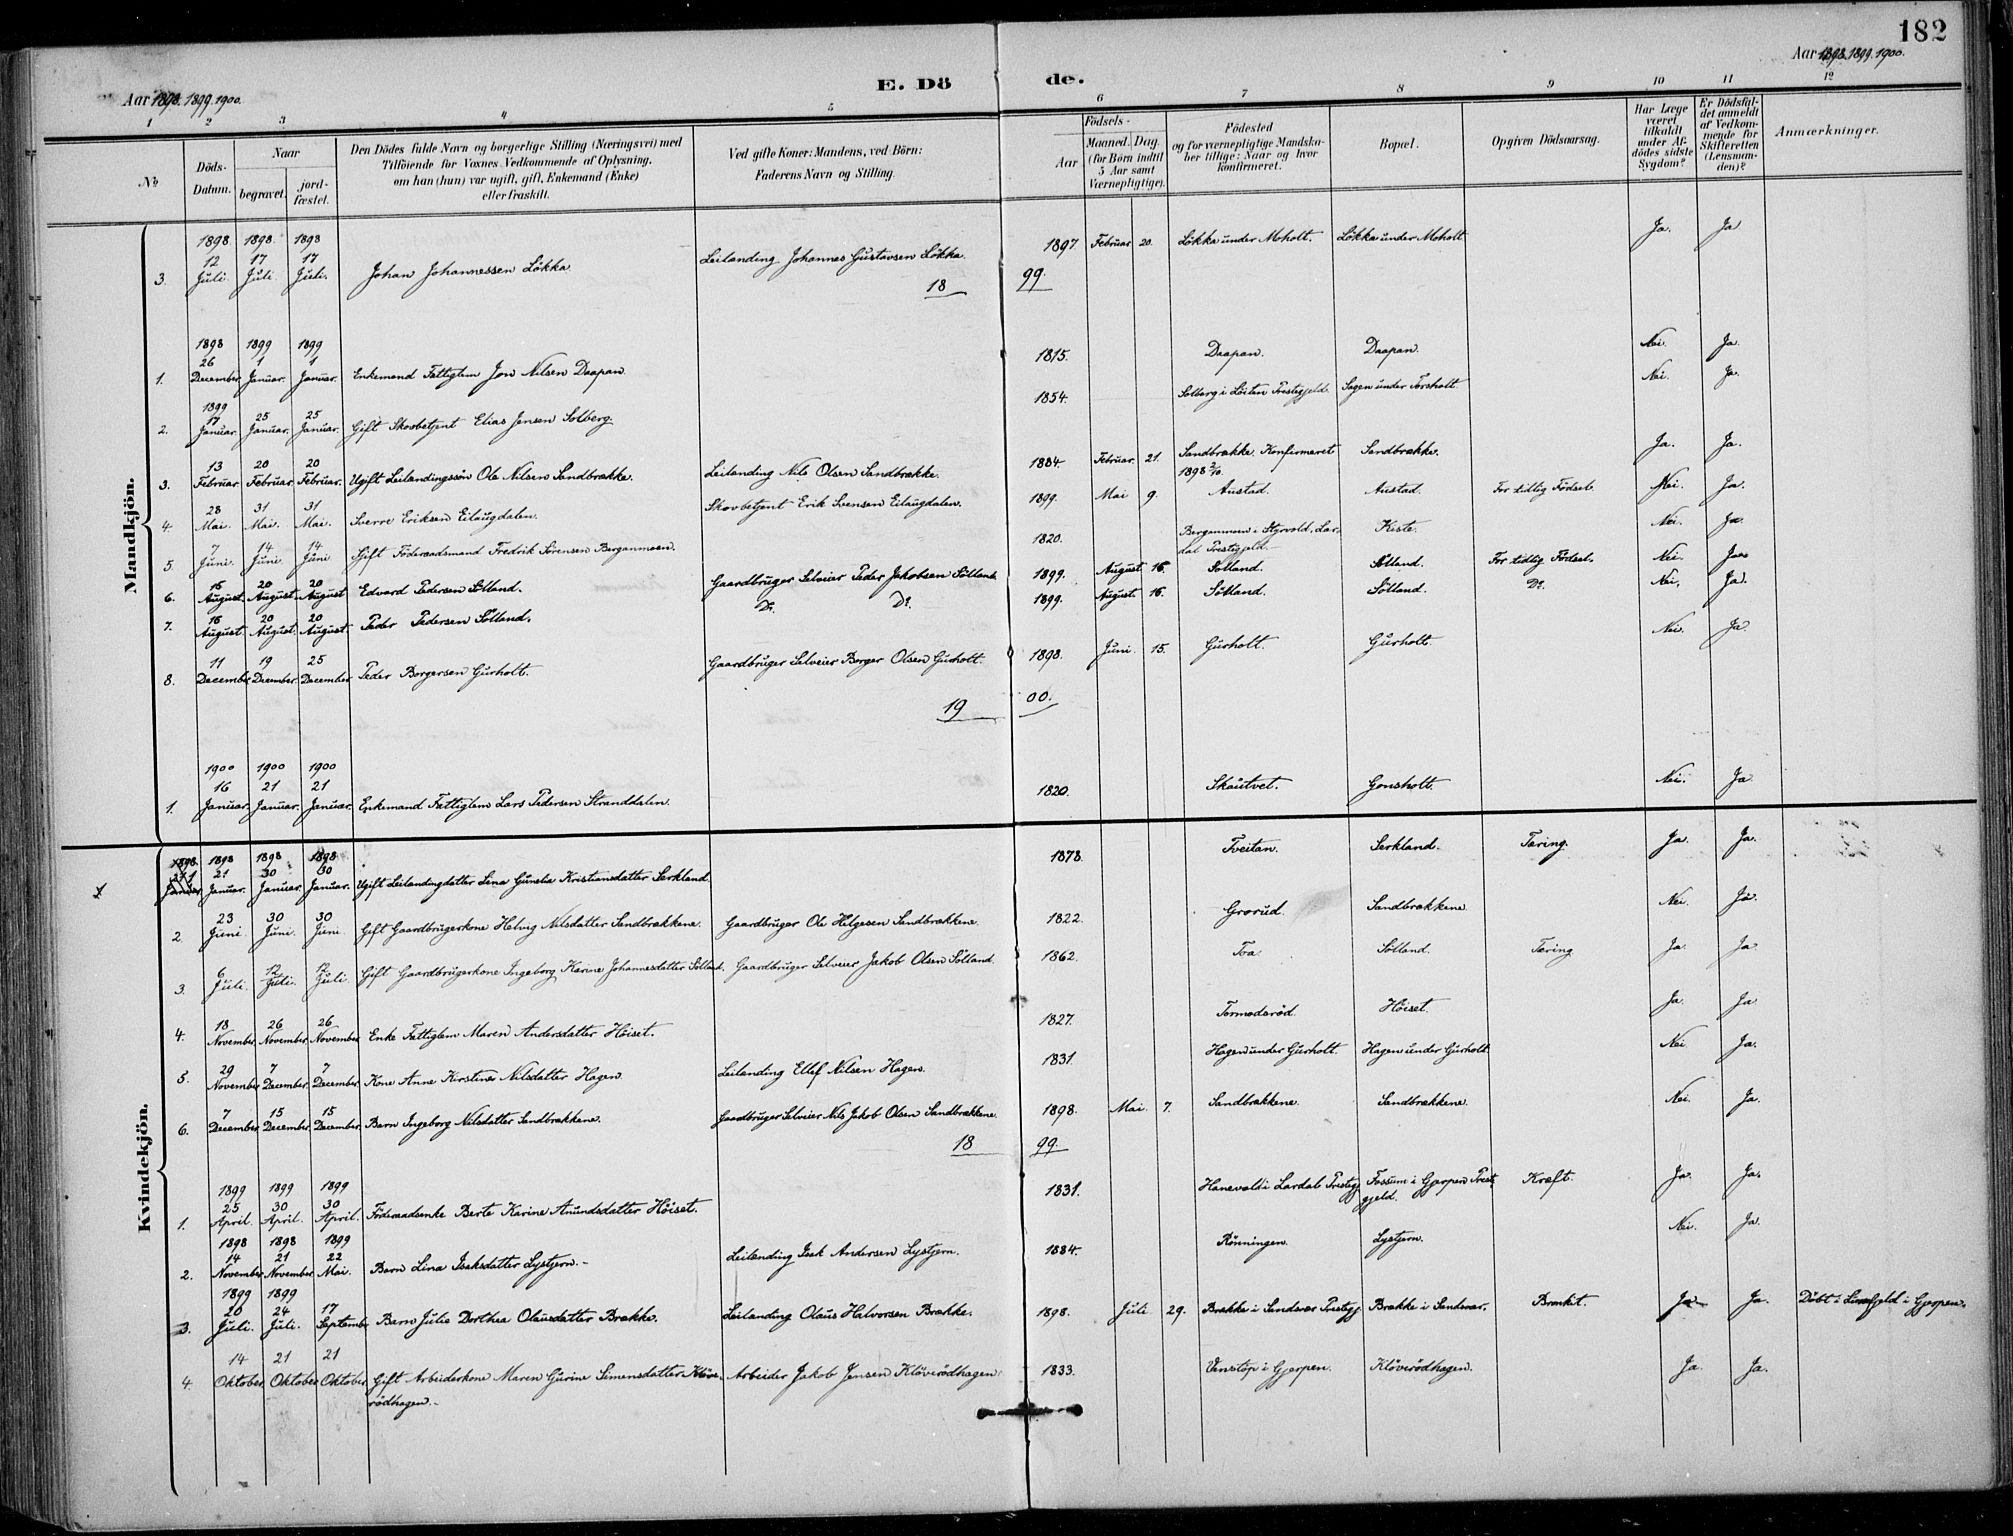 182
Aar 1898. 1899. 1900.
Aar 1898. 1899. 1900.
E. Dö de.
1 2 3 4 5 6 7 8 9 10 11 12
No
Döds-Datum.
Naar
begravet.
jord-fæstet.
Den Dödes fulde Navn og borgerlige Stilling (Næringsvei) med
Tilföiende for Voxnes Vedkommende af Oplysning,
om han (hun) var ugift, gift, Enkemand (Enke)
eller fraskilt.
Ved gifte Koner: Mandens, ved Börn:
Faderens Navn og Stilling.
Födsels-
Aar
Maaned. Dag.
(for Börn indtil
5 Aar samt
Værnepligtige).
Födested
og for værnepligtige Mandska-
ber tillige: Naar og hvor
konfirmeret.
Bopæl.
Opgiven Dödsaarsag.
Har Læge
været
tilkaldt
under Af-
dödes sidste
Sygdom?
Er Dödsfal-
det anmeldt
af Vedkom-
mende for
Skifteretten
(Lensman-
den)?
Anmærkninger.
Mandkjön.
1898 1898 1898
3. 12 Juli. 17 Juli. 17 Juli. Johan Johannessen Lökka. Leilending Johannes Gustavsen Lökka. 1897 Februar 20. Lökka under Moholt. Lökka under Moholt Ja. Ja
18 99.
1898 1899 1899
1. 26 December. 1 Januar. 1 Januar. Enkemand Fattiglem Jon Nilsen Daapan. 1815. Daapan. Daapan. Nei. Ja.
1899
2. 17 Januar. 25 Januar. 25 Januar. Gift Skovbetjent Elias Jensen Solberg. 1854. Solberg i Löiten Prestegjeld. Sagen under Forsholt. Nei. Ja.
3. 13 Februar. 20 Februar. 20 Februar. Ugift Leilendingssön Ole Nilsen Sandbrække. Leilending Nils Olsen Sandbrække. 1884. Februar. 21. Sandbrække. Konfirmeret 1898 2/10. Sandbrække. Ja. Ja.
4. 28 Mai. 31 Mai. 31 Mai. Sverre Eriksen Eilaugdalen. Skovbetjent Erik Svensen Eilaugdalen. 1899. Mai 9. Austad. Austad. For tidlig Födsel. Nei. Ja.
5. 7 Juni. 14 Juni. 14 Juni. Gift Föderaadsmand Fredrik Sörensen Berganmoen. 1820. Berganmoen i Styrvold, Lardal Prestegjeld. Kiste. Nei. Ja.
6. 16 August. 20 August. 20 August Edvard Pedersen Sölland. Gaardbruger Selveier Peder Jakobsen Sölland. 1899. August 16. Sölland. Sölland. For tidlig Födsel. Nei. Ja.
7. 16 August. 20 August. 20 August. Peder Pedersen Sölland. Do. Do. 1899. August. 16. Sölland. Sölland. Do. Nei. Ja.
8. 11 December. 19 December. 25 December Peder Borgersen Gurholt. Gaardbruger Selveier Borger Olsen Gurholt. 1898. Juni. 15. Gurholt. Gurholt. Nei. Ja.
19 00.
1900 1900 1900
1. 16 Januar. 21 Januar. 21 Januar. Enkemand Fattiglem Lars Pedersen Stranddalen. 1820. Skautvet. Gonsholt. Nei. Ja
Kvindekjön.
1898 1898 1898
1 21 Januar. 30 Januar. 30 Januar. Ugift Leilendingdatter Lina Gunelia Kristiansdatter Serkland. 1878. Tveitan. Serkland. Tæring. Ja. Ja.
2. 23 Juni 30 Juni. 30 Juni. Gift Gaardbrugerkone Helvig Nilsdatter Sandbrækkene. Gaardbruger Ole Helgesen Sandbrækkene. 1822. Grorud. Sandbrækkene. Nei. Ja.
3. 6 Juli. 12 Juli. 12 Juli. Gift Gaardbrugerkone Ingeborg Karine Johannesdatter Sölland. Gaardbruger Selveier Jakob Olsen Sölland. 1862. Toa. Sölland. Tæring Ja. Ja.
4. 18 November. 26 November. 26 November. Enke Fattiglem Maren Andersdatter Höiset. 1827. Tormodsröd. Höiset. Ja. Ja.
5. 29 November. 7 December. 7 December. Kone Anne Kirstine Nilsdatter Hagen. Leilending Ellef Nilsen Hagen. 1831. Hagen under Gurholt. Hagen under Gurholt. Nei Ja.
6. 7 December. 15 December. 15 December. Barn Ingeborg Nilsdatter Sandbrækkene. Gaardbruger Selveier Nils Jakob Olsen Sandbrækkene. 1898. Mai. 7. Sandbrækkene. Sandbrækkene. Nei. Ja.
18 99.
1899 1899 1899
1. 25 April. 30 April. 30 April. Föderaadsenke Berte Karine Anundsdatter Höiset. 1831. Hanevold i Lardal Presteg. Fossum i Gjerpen Prestgjeld. Kræft. Ja. Ja.
1898 1898 1899
2. 14 November. 21 November. 22 Mai. Barn Lina Isaksdatter Lystjern. Leilending Isak Andersen Lystjern. 1884. Rönningen. Lystjern. Nei. Ja.
1899 1899
3. 20 Juli. 24 Juli. 17 September. Barn Julie Dorthea Olausdatter Brække. Leilending Olaus Halvorsen Brække. 1898. Juli 29. Brække i Sandsvær Prestegj. Brække i Sandsvær. Bronkit. Ja. Ja. Döbt i Luxefjeld i Gjerpen.
4. 14 Oktober. 21 Oktober. 21 Oktober. Gift Arbeiderkone Maren Gurine Simensdatter Klöve- Arbeider Jakob Jensen Klöverödhagen. 1833. Venstöp i Gjerpen. Klöverödhagen. Ja. Ja.
rödhagen.